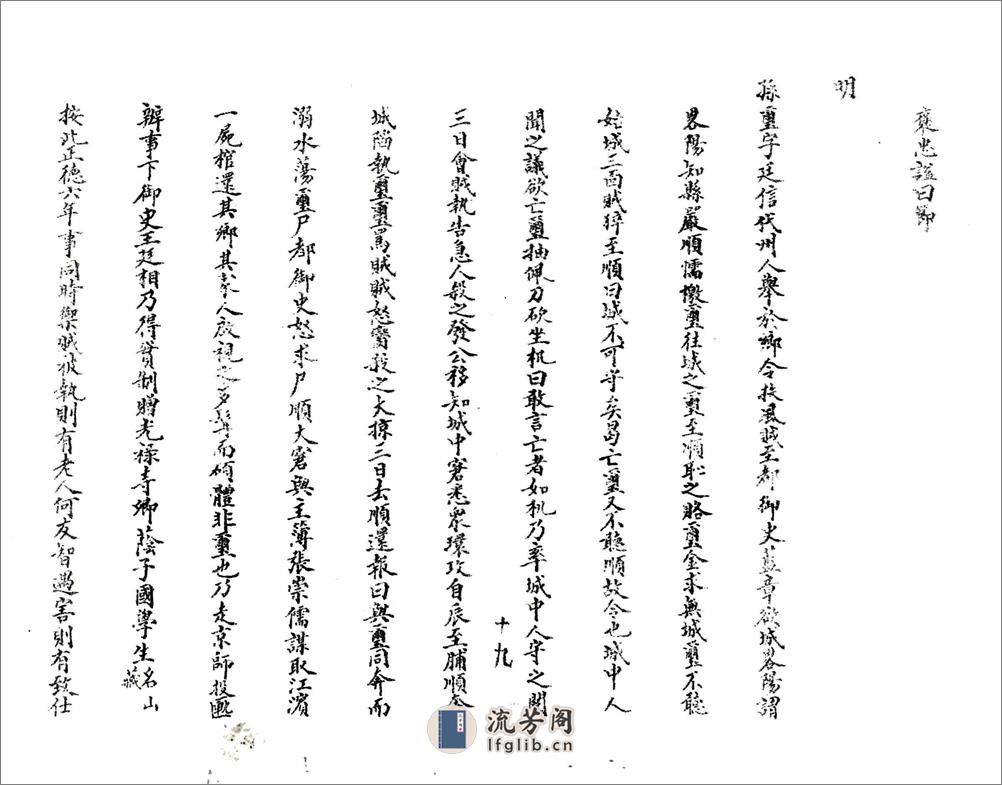 褒忠謚曰節
明
孫璽字廷信代州人舉於鄉令扶風賊至都御史藍章欲城畧陽謂
畧陽知縣嚴順懦檄璽往城之璽至順恥之賂璽金求無城璽不聽
始城三面賊猝至順曰城不可守矣曷亡璽又不聽順故令也城中人
聞之議欲亡璽抽佩刀砍坐杌曰敢言亡者如杌乃率城中人守之閱
三日會賊執告急人殺之發公移知城中窘悉衆環攻自辰至脯順奔
城陷執璽璽罵賊賊怒臠殺之大掠三日去順還報曰與璽同奔而
溺水蕩璽尸都御史怒求尸順大窘與主簿張崇儒謀取江濱
一屍棺還其鄉其家人啟視之多髯而碩體非璽也乃走京師投匭
辦事下御史王廷相乃得實制贈光祿寺卿蔭子國學生名山藏
按此正德六年事同時禦賊被執則有老人何友智遇害則有致仕
十九
流芳阁
lfglib.cn